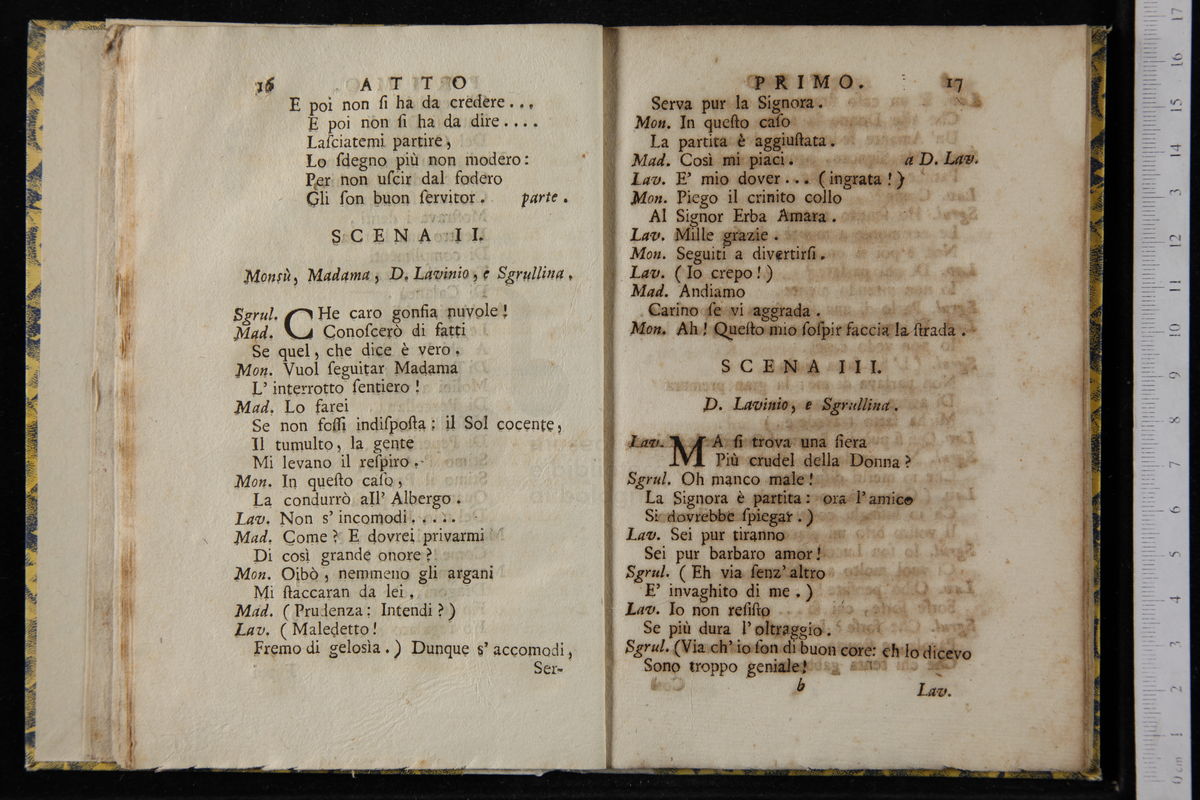 16 ATTO
E poi non ſi ha da credere...
E poi non ſi ha da dire....
Laſciatemi partire,
Lo ſdegno più non modero:
Per non uſcir dal fodero
Gli ſon buon ſervitor. parte.
SCENA II.
Monsù, Madama, D. Lavinio, e Sgrullina.
Sgrul. CHe caro gonfia nuvole!
Mad. Conoſcerò di fatti
Se quel, che dice è vero.
Mon. Vuol ſeguitar Madama
L' interrotto ſentiero!
Mad. Lo farei
Se non foſſi indiſpoſta: il Sol cocente,
Il tumulto, la gente
Mi levano il reſpiro.
Mon. In queſto caſo,
La condurrò all' Albergo.
Lav. Non s' incomodi.....
Mad. Come? E dovrei privarmi
Di così grande onore?
Mon. Oibò, nemmeno gli argani
Mi ſtaccaran da lei.
Mad. (Prudenza: Intendi?)
Lav. (Maledetto!
Fremo di gelosìa.) Dunque s' accomodi,
Ser-
PRIMO. 17
Serva pur la Signora.
Mon. In queſto caſo
La partita è aggiuſtata.
Mad. Così mi piaci. a D. Lav.
Lav. E' mio dover... (ingrata!)
Mon. Piego il crinito collo
Al Signor Erba Amara.
Lav. Mille grazie.
Mon. Seguiti a divertirſi.
Lav. (Io crepo!)
Mad. Andiamo
Carino ſe vi aggrada.
Mon. Ah! Queſto mio ſoſpir faccia la ſtrada.
SCENA III.
D. Lavinio, e Sgrullina.
Lav. MA ſi trova una fiera
Più crudel della Donna?
Sgrul. Oh manco male!
La Signora è partita: ora l' amico
Si dovrebbe ſpiegar.)
Lav. Sei pur tiranno
Sei pur barbaro amor!
Sgrul. (Eh via ſenz' altro
E' invaghito di me.)
Lav. Io non reſiſto
Se più dura l' oltraggio.
Sgrul. (Via ch' io ſon di buon core: eh lo dicevo
Sono troppo geniale!
b Lav.